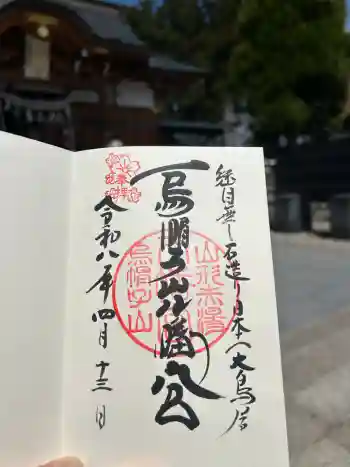 継目無し石造り日本一大鳥居
烏帽子山八幡公
奉拝
令和八年四月十三日
山形赤湯
烏帽子山